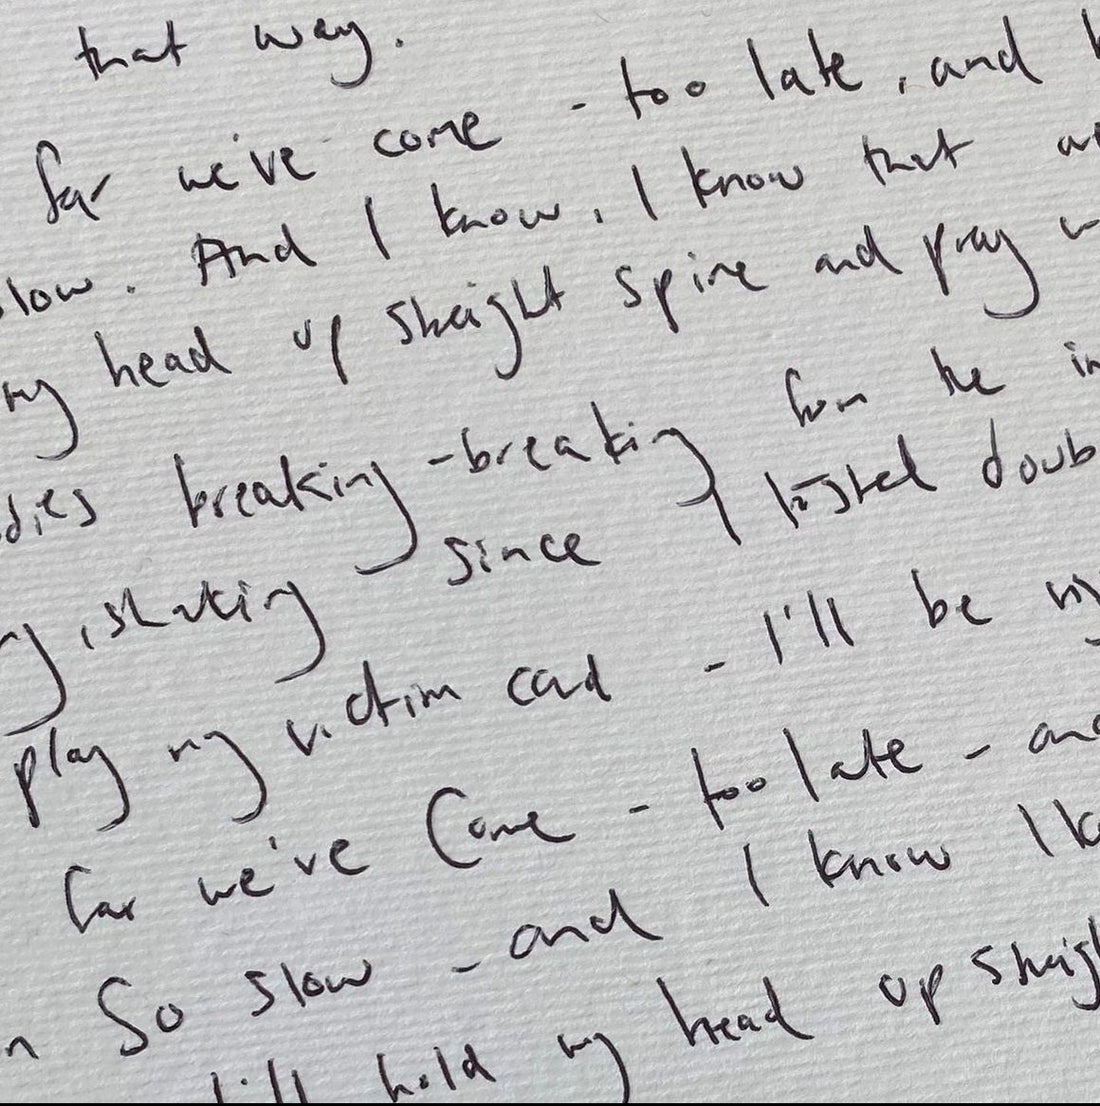 that way.
far we've come - too late, and
slow. And I know, I know that
my head up straight spine and pray
breaking - breaking from the
shaking since I tasted
play my victim card - I'll be
far we've come - too late - and
So slow - and I know I
I'll hold my head up straight